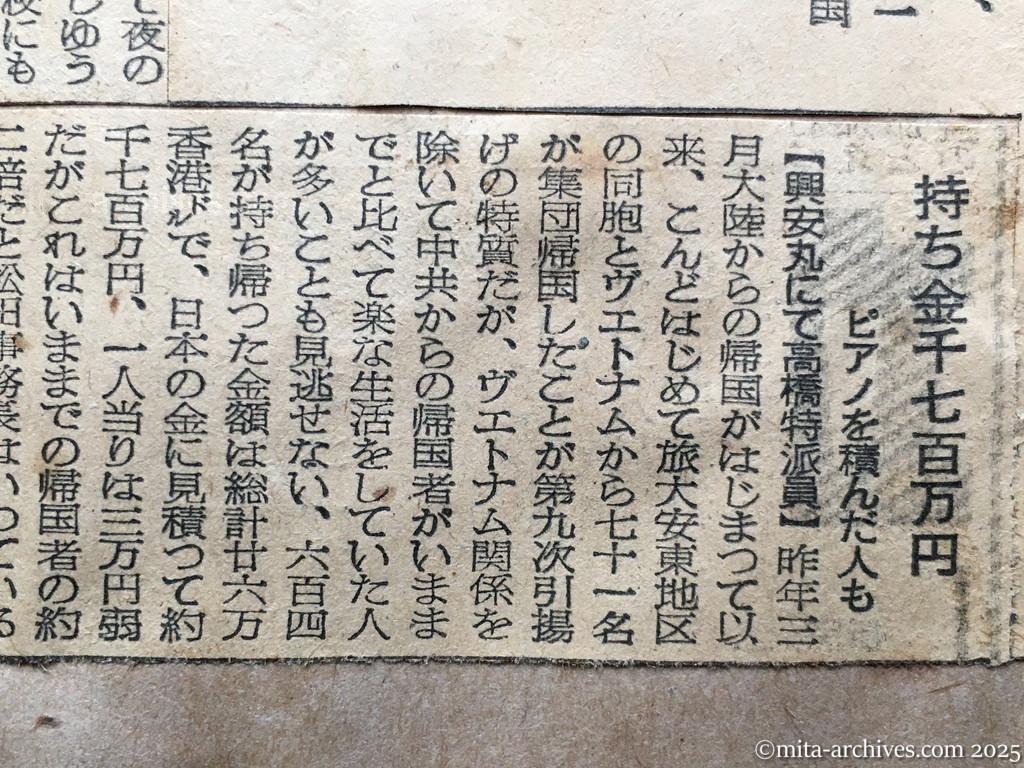 持ち金千七百万円
ピアノを積んだ人も
【興安丸にて高橋特派員】昨年三
月大陸からの帰国がはじまつて以
来、こんどはじめて旅大安東地区
の同胞とヴエトナムから七十一名
が集団帰国したことが第九次引揚
げの特質だが、ヴエトナム関係を
除いて中共からの帰国者がいまま
でと比べて楽な生活をしていた人
が多いことも見逃せない、六百四
名が持ち帰つた金額は総計廿六万
香港㌦で、日本の金に見積つて約
千七百万円、一人当りは三万円弱
だがこれはいままでの帰国者の約
二倍だと松田事務長はいつている
て夜の
しゆう
にも
国
一
©mita-archives.com 2025